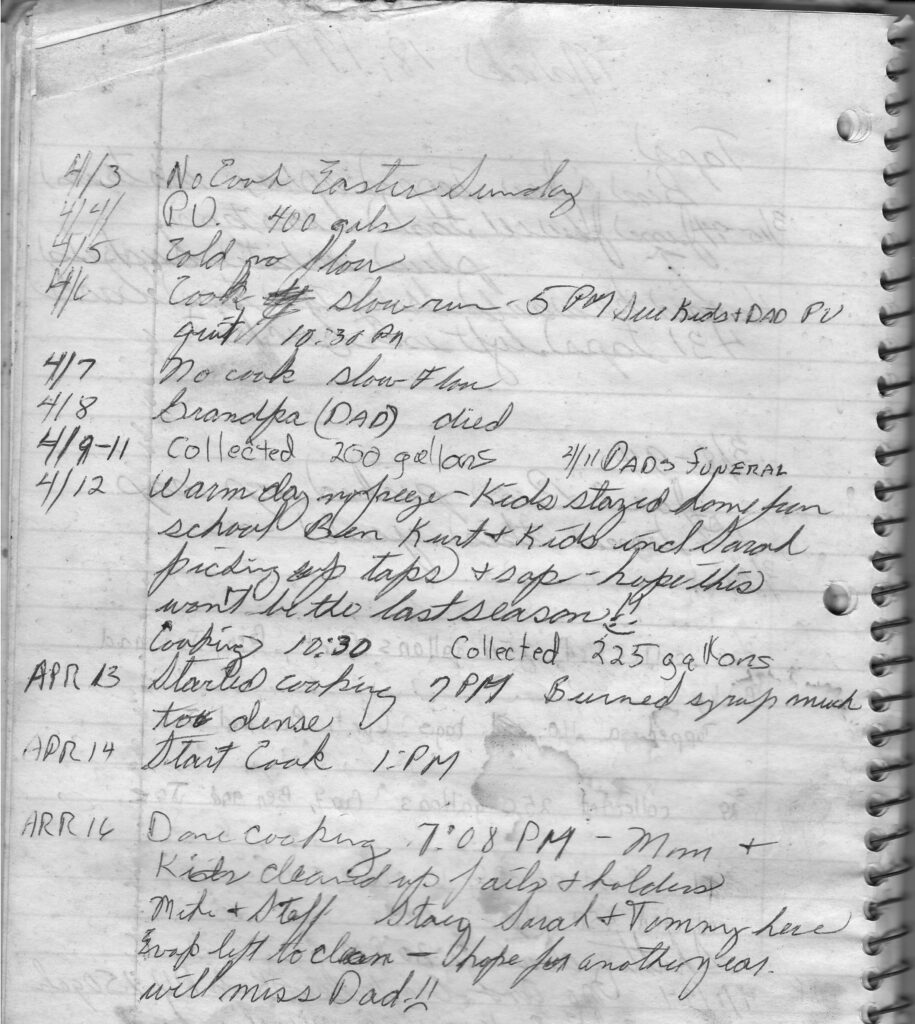 4/3 No Cook Easter Sunday
4/4 P.U. 400 gals
4/5 Cold no flow
4/6 Cook slow run - 5 PM Kids + DAD PU
quit 10:30 PM
4/7 No cook slow Flow
4/8 Grandpa (DAD) died
4/9-11 Collected 200 gallons 4/11 DADS FUNERAL
4/12 Warm day no freeze - Kids stayed home fun
school Ben Kurt + Kids incl Sarah
picking up taps + sap - hope this
won't be the last season!!
Cooking 10:30 Collected 225 gallons
APR 13 Started cooking 7 PM Burned syrup much
too dense
APR 14 Start Cook 1:PM
APR 16 Done cooking 7:08 PM - Mom +
Kids cleaned up pails + holders
Mike + Steff Stacy Sarah + Tommy here
Evap left to clean - hope for another year.
will miss Dad!!